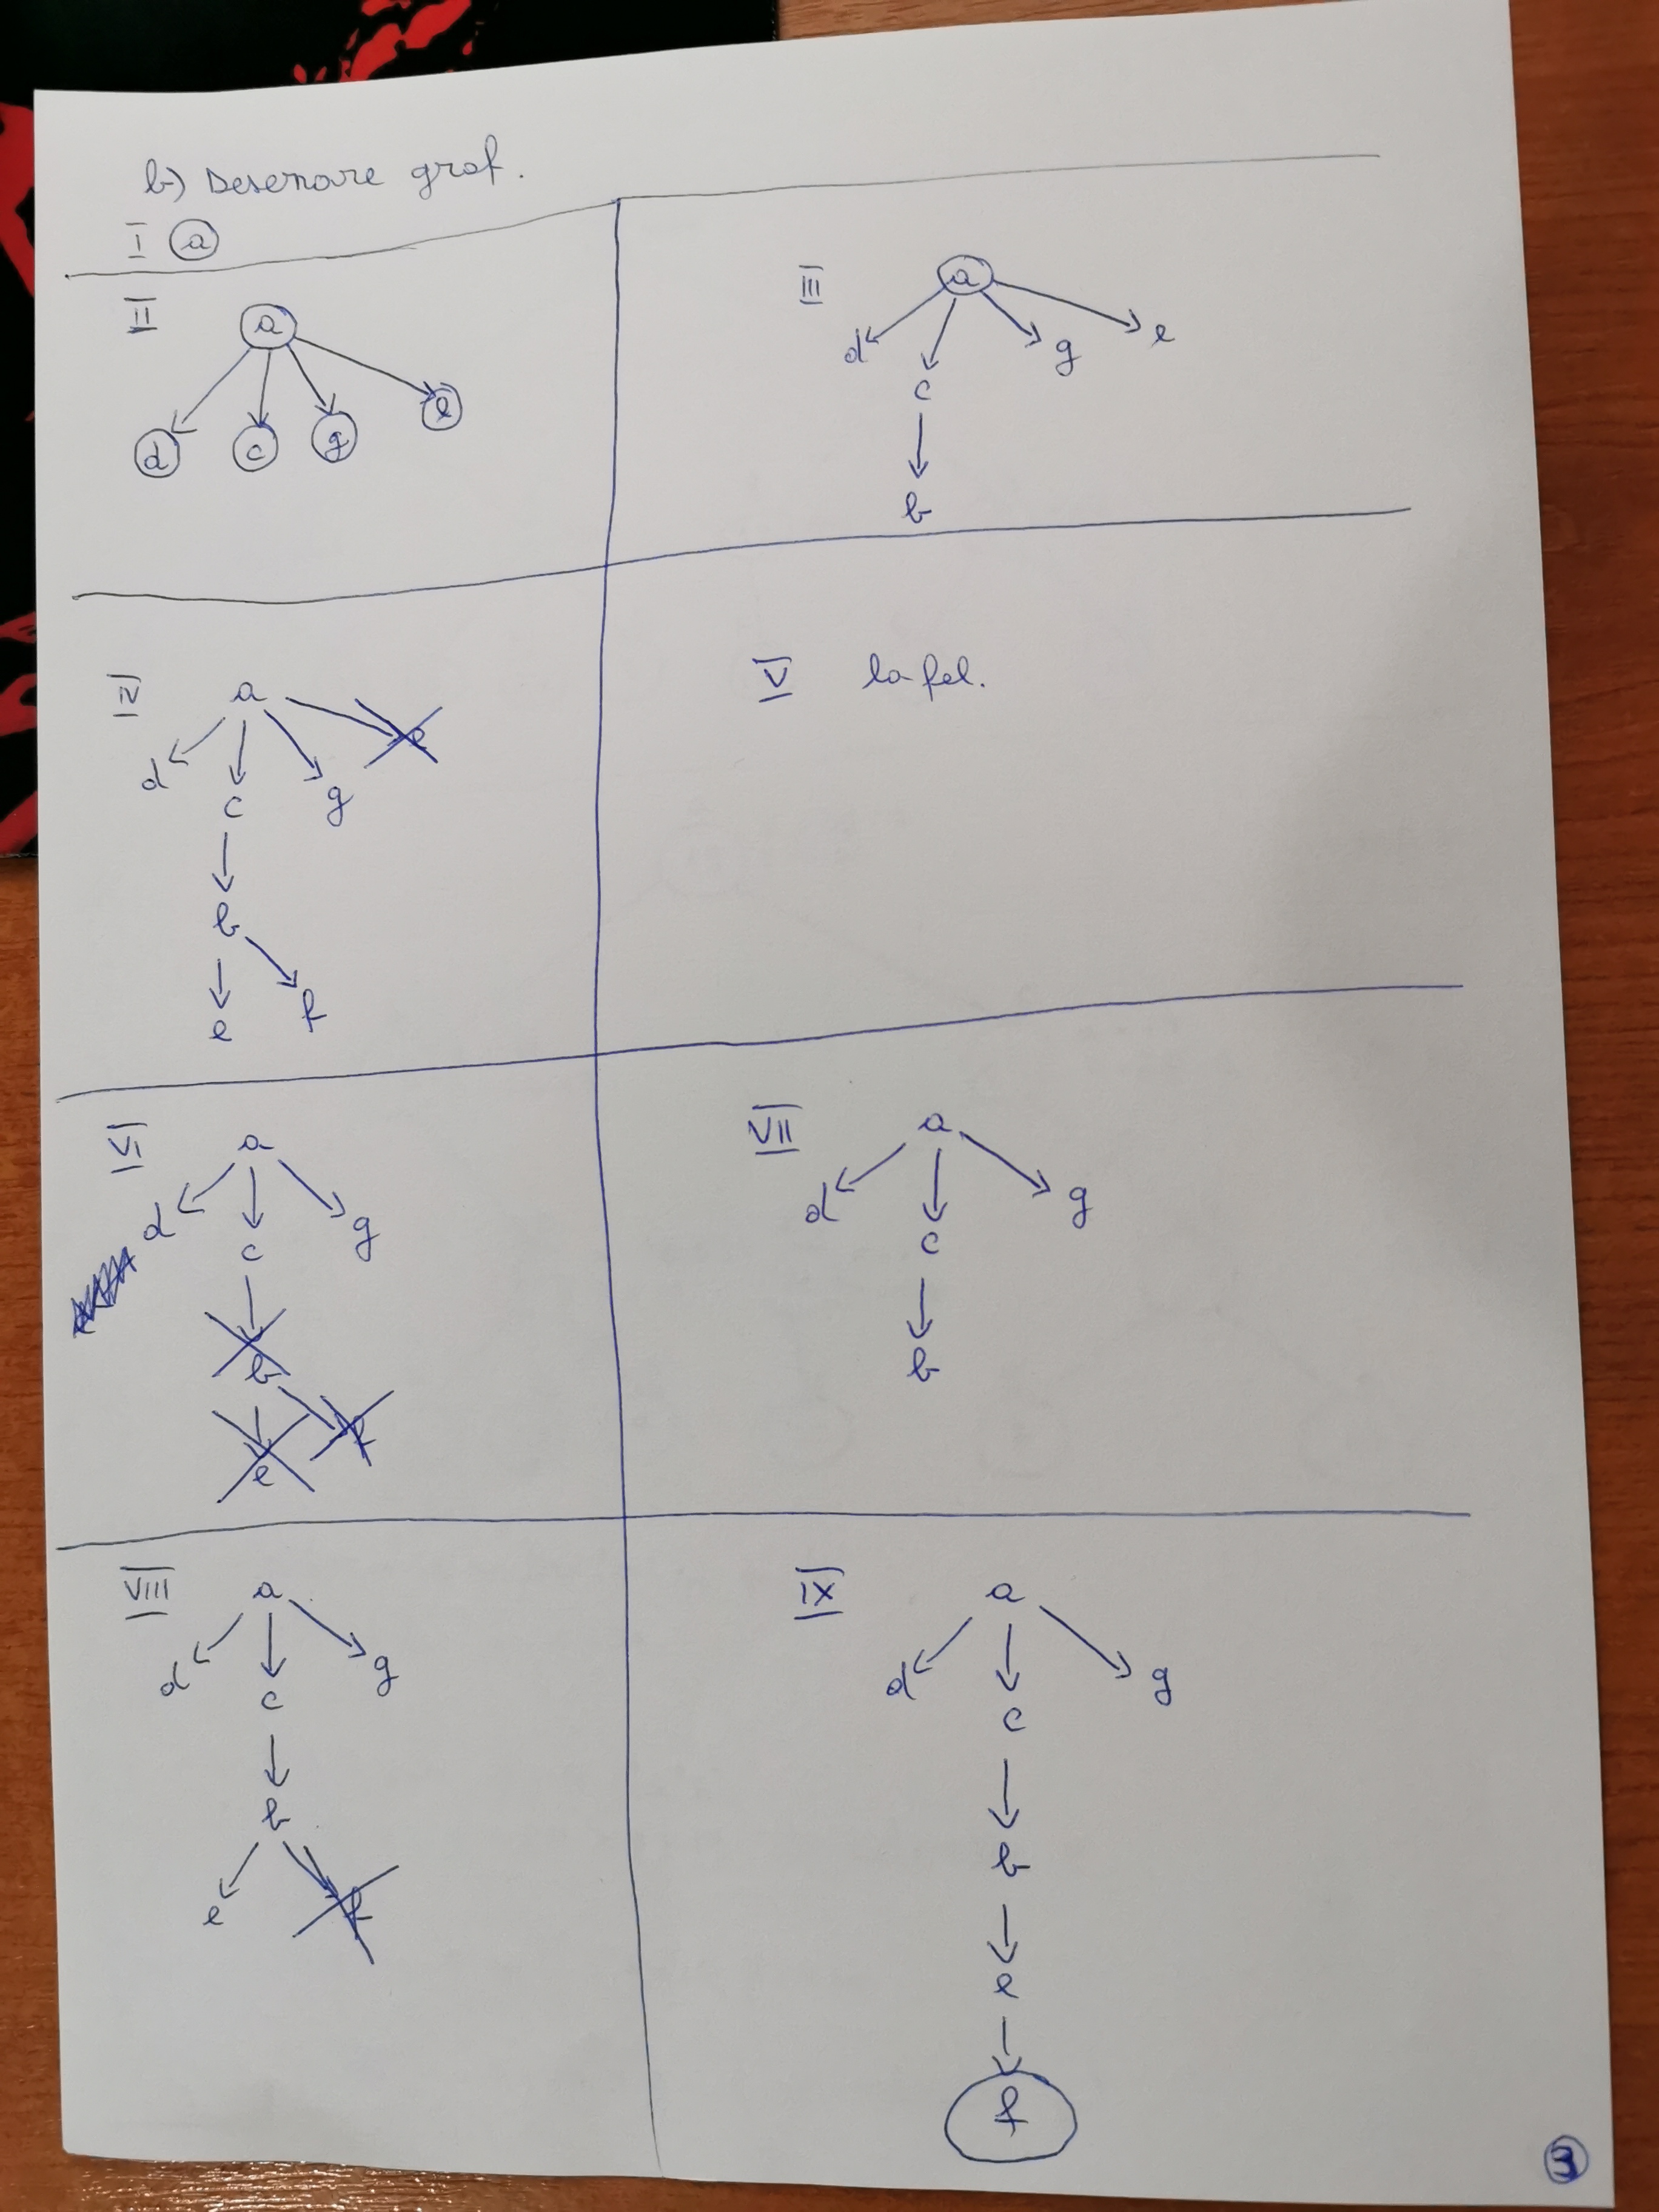 b) Desenare graf.
I a
II
a
d c g e
III
a
d c g e
b
IV
a
d c g e
b
e f
V la fel.
VI
a
d c g
b
e f
VII
a
d c g
b
VIII
a
d c g
b
e f
IX
a
d c g
b
e
f
3